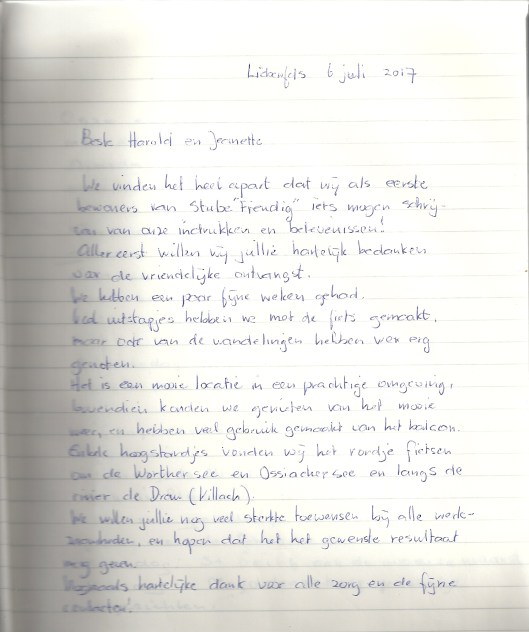 Liebenfels 6 juli 2017
Beste Harold en Jeanette
We vinden het heel apart dat wij als eerste
bewoners van Stube "Freudig" iets mogen schrij-
ven van onze indrukken en belevenissen!
Allereerst willen wij jullie hartelijk bedanken
voor de vriendelijke ontvangst.
We hebben een paar fijne weken gehad.
Veel uitstapjes hebben we met de fiets gemaakt,
maar ook van de wandelingen hebben we erg
genoten.
Het is een mooie locatie in een prachtige omgeving,
bovendien konden we genieten van het mooie
weer, en hebben veel gebruik gemaakt van het balcon.
Enkele hoogstandjes vonden wij het rondje fietsen
om de Worthersee en Ossiachersee en langs de
rivier de Drau (Villach).
We willen jullie nog veel sterkte toewensen bij alle werk-
zaamheden, en hopen dat het het gewenste resultaat
mag geven.
Nogmaals hartelijke dank voor alle zorg en de fijne
contacten!